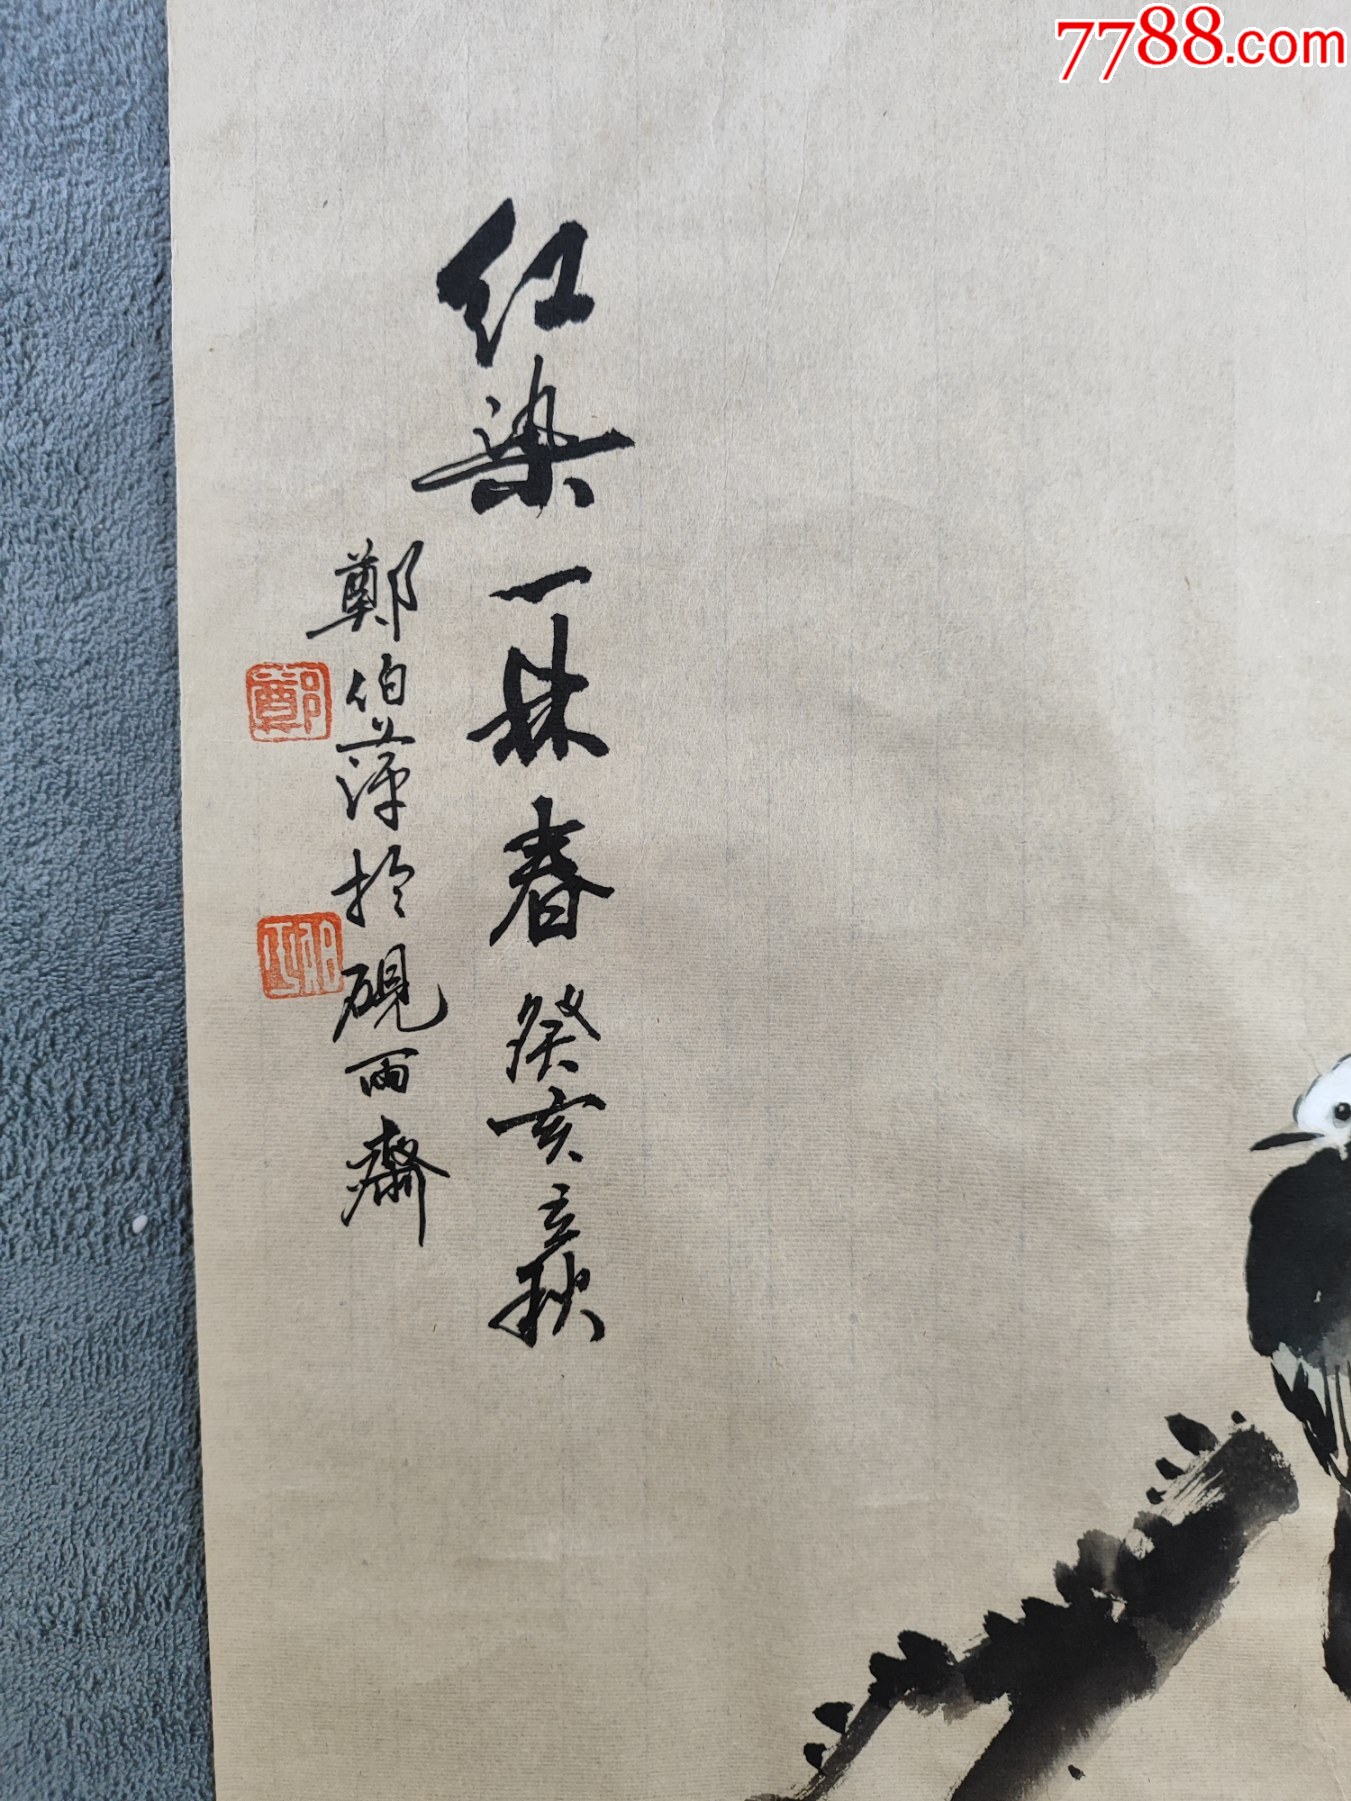 7788.com
红染一林春癸亥立秋
鄭伯萍於硯雨齋
鄭